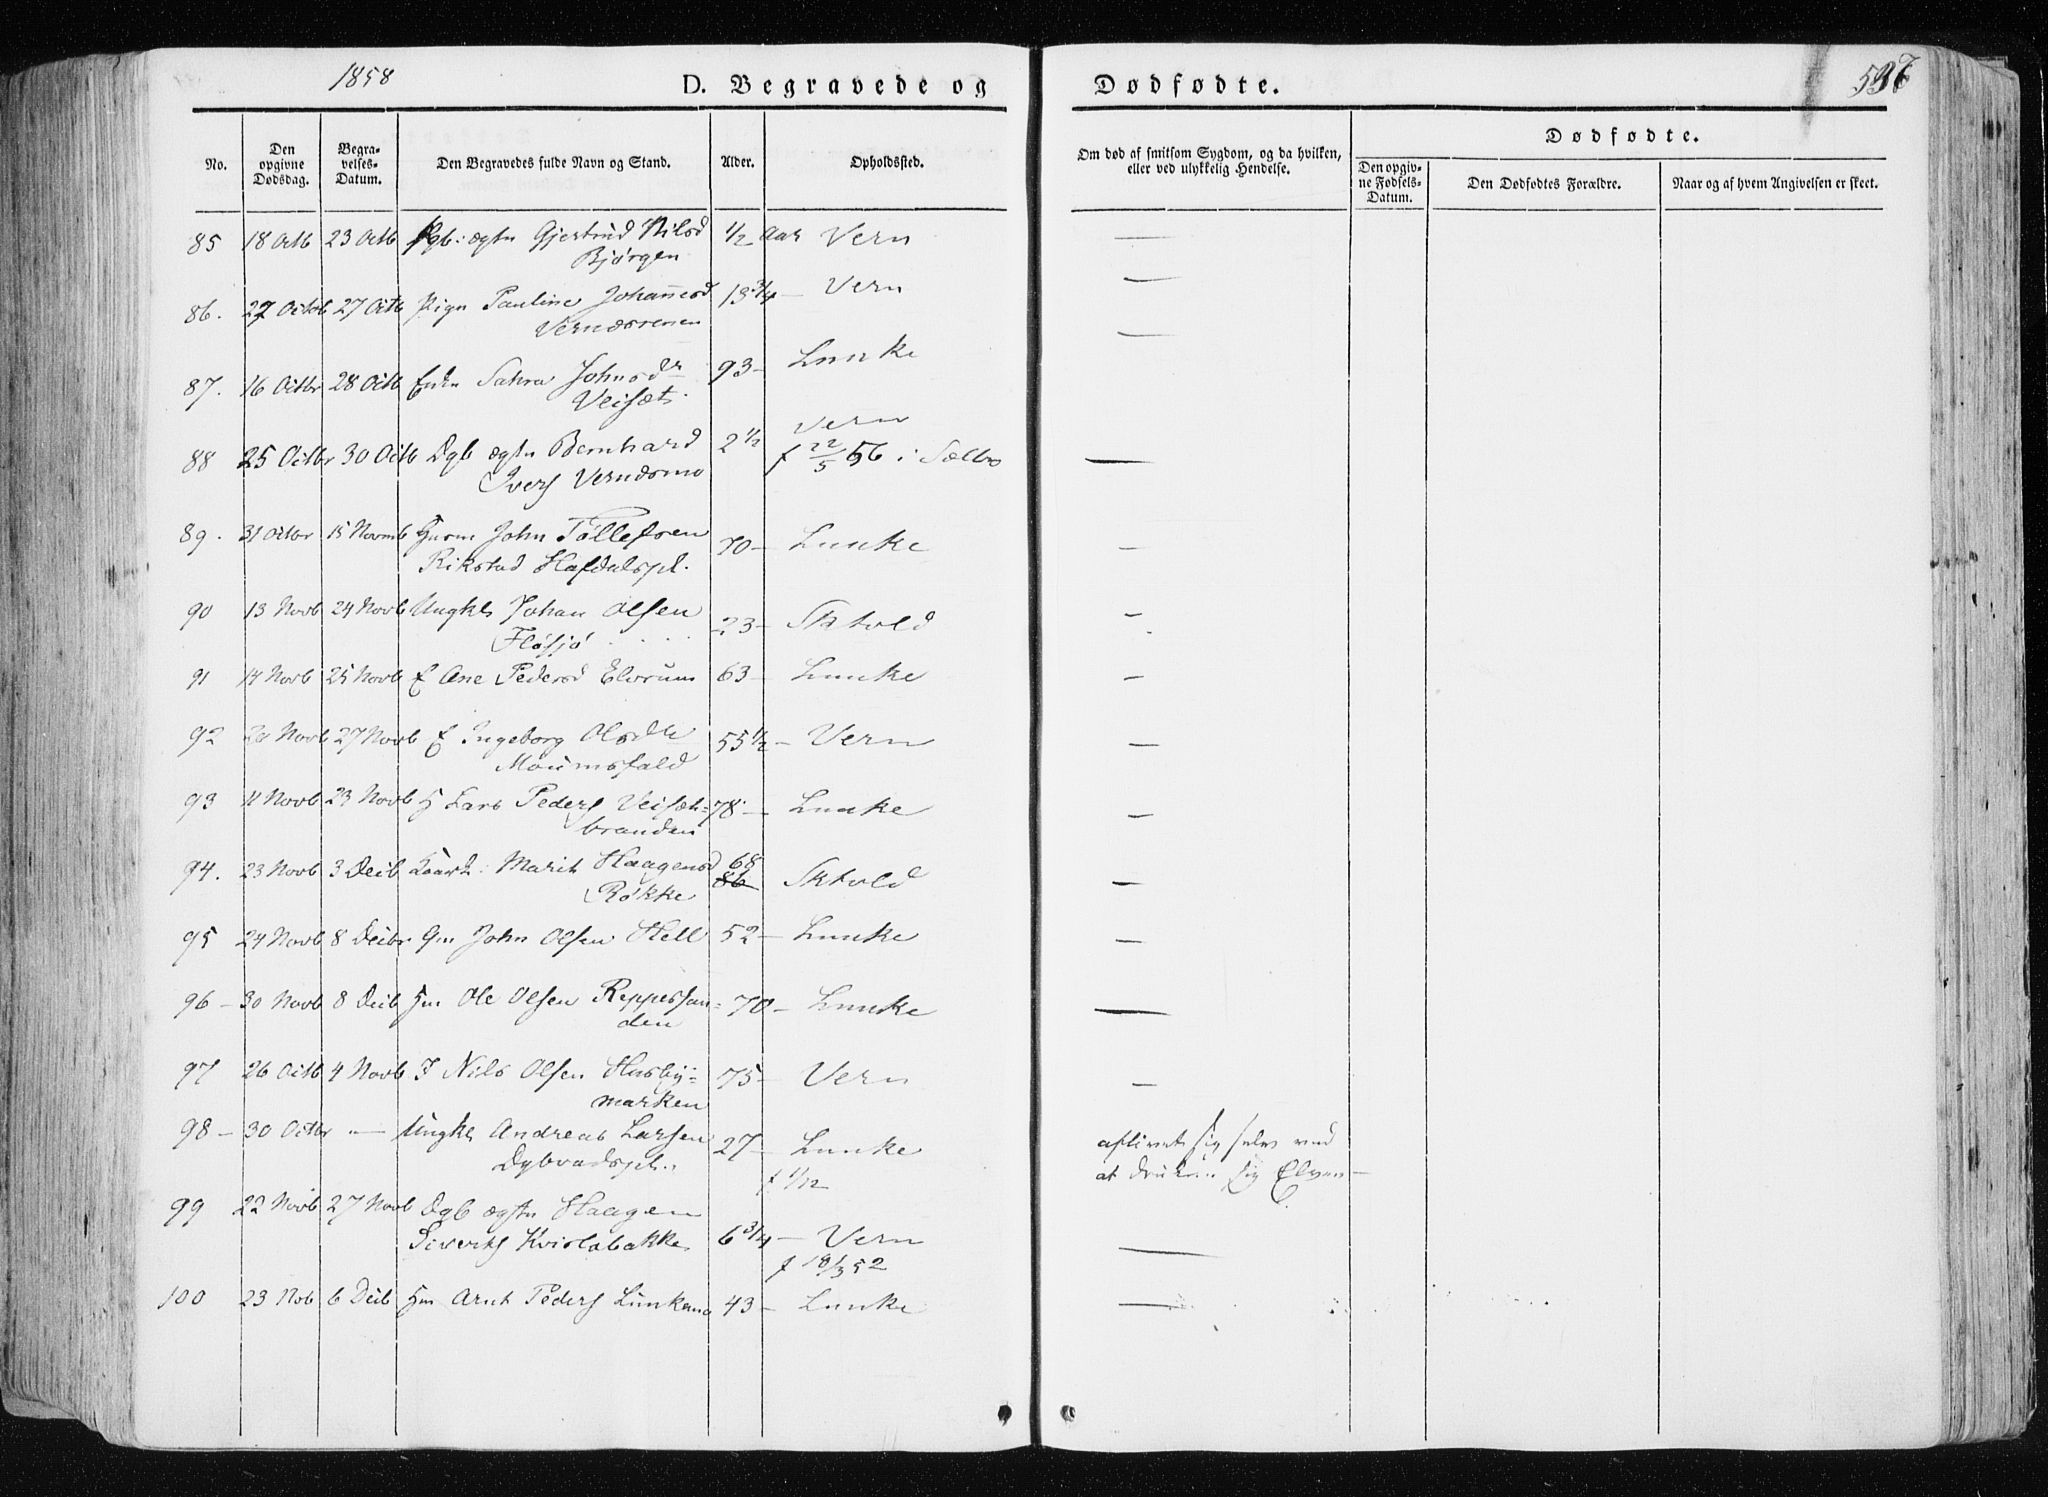 1858
D. Begravede og Dødfødte.
537
No. Den opgivne Dødsdag. Begravelses-Datum. Den Begravedes fulde Navn og Stand. Alder. Opholdssted. Om død af smitsom Sygdom, og da hvilken, eller ved ulykkelig Hendelse. Dødfødte.
Den opgivne Fødsels-Datum. Den Dødfødtes Forældre. Naar og af hvem Angivelsen er skeet.
85 18 Octb 23 Octb Pgb: ægtn Gjertrud Nilsd ½ Aar Vern —
Bjørgen
86. 22 Octob 27 Octb Pign Pauline Johannesd 13¾ — Vern —
Vernæsrenen
87. 16 Octbr 28 Octb Enkn Sahra Johnsdr 93 — Lunke —
Veisæt.
88 25 Octbr 30 Octb Dgb ægtn Bernhard 2½ Vern —
Ivers Vernæsmo f 22/5 56 i Sælbo
89. 31 Octbr 15 Novmb Huusm John Tøllefsen 70 — Lunke —
Rikstad Hafdalspl.
90 13 Novb 24 Novb Ungkl Johan Olsen 23 — Sktvold —
Fløsjø
91 14 Novb 25 Novb E Ane Pedersd Elvrum 63 — Lunke —
92 20 Novb 27 Novb E Ingeborg Olsdtr 55½ — Vern —
93 11 Novb 23 Novb H Lars Peders Veisæt= 78 — Lunke —
branden
94. 23 Novb 3 Decb Kaark: Marit Haagensd 68 86 Sktvold —
Røkke
95 24 Novb 8 Decbr Gm John Olsen Hell 52 — Lunke —
96 — 30 Novb 8 Decb Hm Ole Olsen Reppessan= 70 — Lunke —
den
97 26 Octb 4 Novb I Nils Olsen Husby= 75 — Vern —
marken
98 — 30 Octbr — Ungkl Andreas Larsen 27 — Lunke aflivet sig selv ved
Dybvadspl. f 1/12 at drukne sig Elven —
99 22 Novb 27 Novb Dgb ægtn Haagen
Siverts Kvislabakke 6¾ — Vern —
f 18/3 52
100 23 Nob 6 Decb Hm Arnt Peders Lunkemo 43 — Lunke —